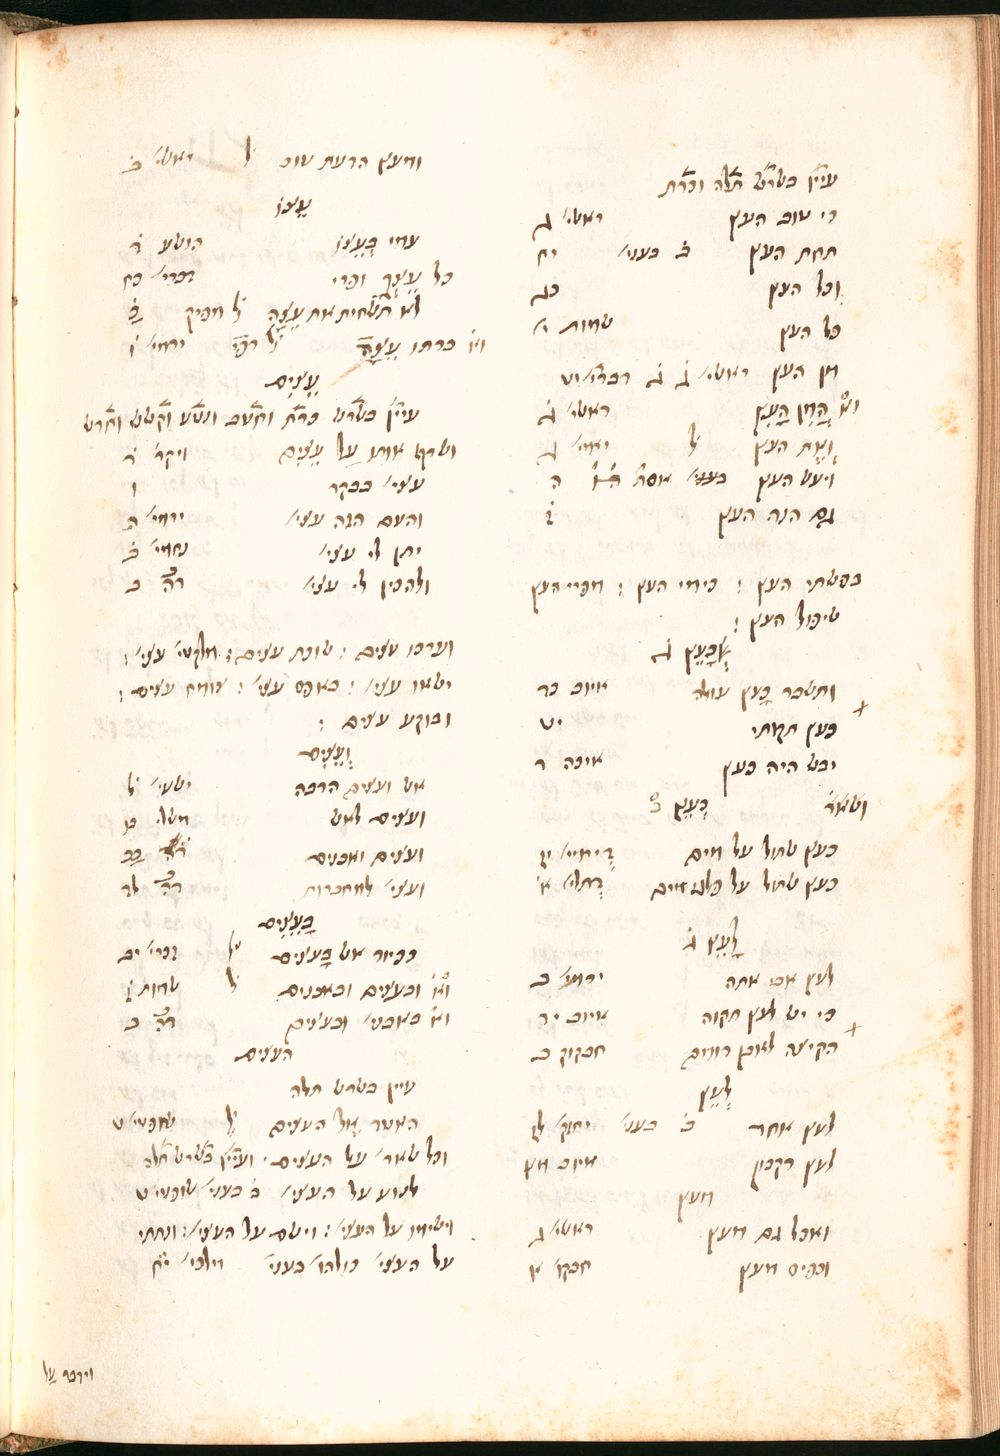 עיין בשרש תלה וכרת
כי טוב העץ ראשי׳ ג
תחת העץ ב בעני׳ יח
וכל העץ כג
כל העץ שמות י׳
מן העץ ראשי׳ ג ג דברי׳ יט
וא׳ הֲמִן הָעֵץ ראשי׳ ג
וְאֵת העץ ל יחזי׳ ג
ויעש העץ
גַּם הנה העץ
בפשתי העץ : כימי העץ : מפרי העץ
שיפול העץ :
כָּעֵץ ג
ותשבר כָּעץ עולה איוב כד
כעץ תקותי יט
יבש היה כעץ איכה ד
ושאר כְּעֵץ ב
כעץ שתול על מים ירמי׳ יז
כעץ שתול על פלגי מים תלי׳ א׳
לָעֵץ ג
לעץ אבי אתה ירמי׳ ב
כי יש לעץ תקוה איוב יד
הקיצה לאבן דומם חבקוק ב
לְעֵץ
לעץ אחד ב בעני׳ יחזק׳ לז
לעץ רקבון איוב מא
מעץ
ואכל גם מעץ ראשי׳ ג
וכפיס מעץ חבקו׳ א
ומעץ הדעת טוב ל ראשי׳ ב
עֵצוֹ
עמי בְּעֵצוֹ הושע ד
כל עֵצְךָ ופרי דברי׳ כח
לא תשחית את עֵצָהּ ל מפיק כ
וא׳ כרתו עֵצָה ל רפי ירמי׳ ו
עֵצִים
עיין בשרש כרת וחטב ונשא וקשש וחרש
ושרף אותו עַל עֵצִים ויקר׳ ד
עצי׳ בבקר ו
והעם הזה עצי׳ ירמי׳ ה
יתן לי עצי׳ נחמי׳ ב
ולהכין לי עצי׳ דה ב
וערכו עצים : שובת עצים : מלקטי׳ עצי׳ :
ישאו עצי׳ : באפס עצי׳ : צומח עצים :
ובוקע עצים :
וְעֵצִים
אש ועצים הרבה ישעי׳ ל
ועצים לאש משלי כו
ועצים ואבנים דה כב
ועצי׳ למחברות דה לד
בְּעֵצִים
ככיור אש בְּעצים ל זכרי׳ יב
וא׳ ובעצים ובאבנים ל שמות ז
וא׳ באבני׳ ובעצים דה ב
העצים
עיין בשרש תלה
האשר אֶל העצים ל
וכל שאר׳ על העצים : ועיין בשרש תלה
לנוע על העצי׳ ב בעני׳ שופטי׳ ט
וישימו על העצי׳ : וישם על העצי׳ : ונתתי
על העצי׳ כולהו׳ בעני׳ מלכי׳ יח
וידבר על